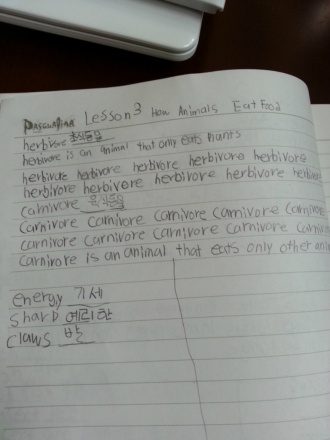 Lesson 3 How Animals Eat Food
herbivore 초식동물
herbivore is an animal that only eats Plants
herbivore herbivore herbivore herbivore herbivore
herbivore herbivore herbivore herbivore herbivore
Carnivore 육식동물
Carnivore Carnivore Carnivore Carnivore Carnivore
Carnivore Carnivore Carnivore Carnivore
Carnivore is an animal that eats only other
energy 기세
Sharp 예리한
Claws 발